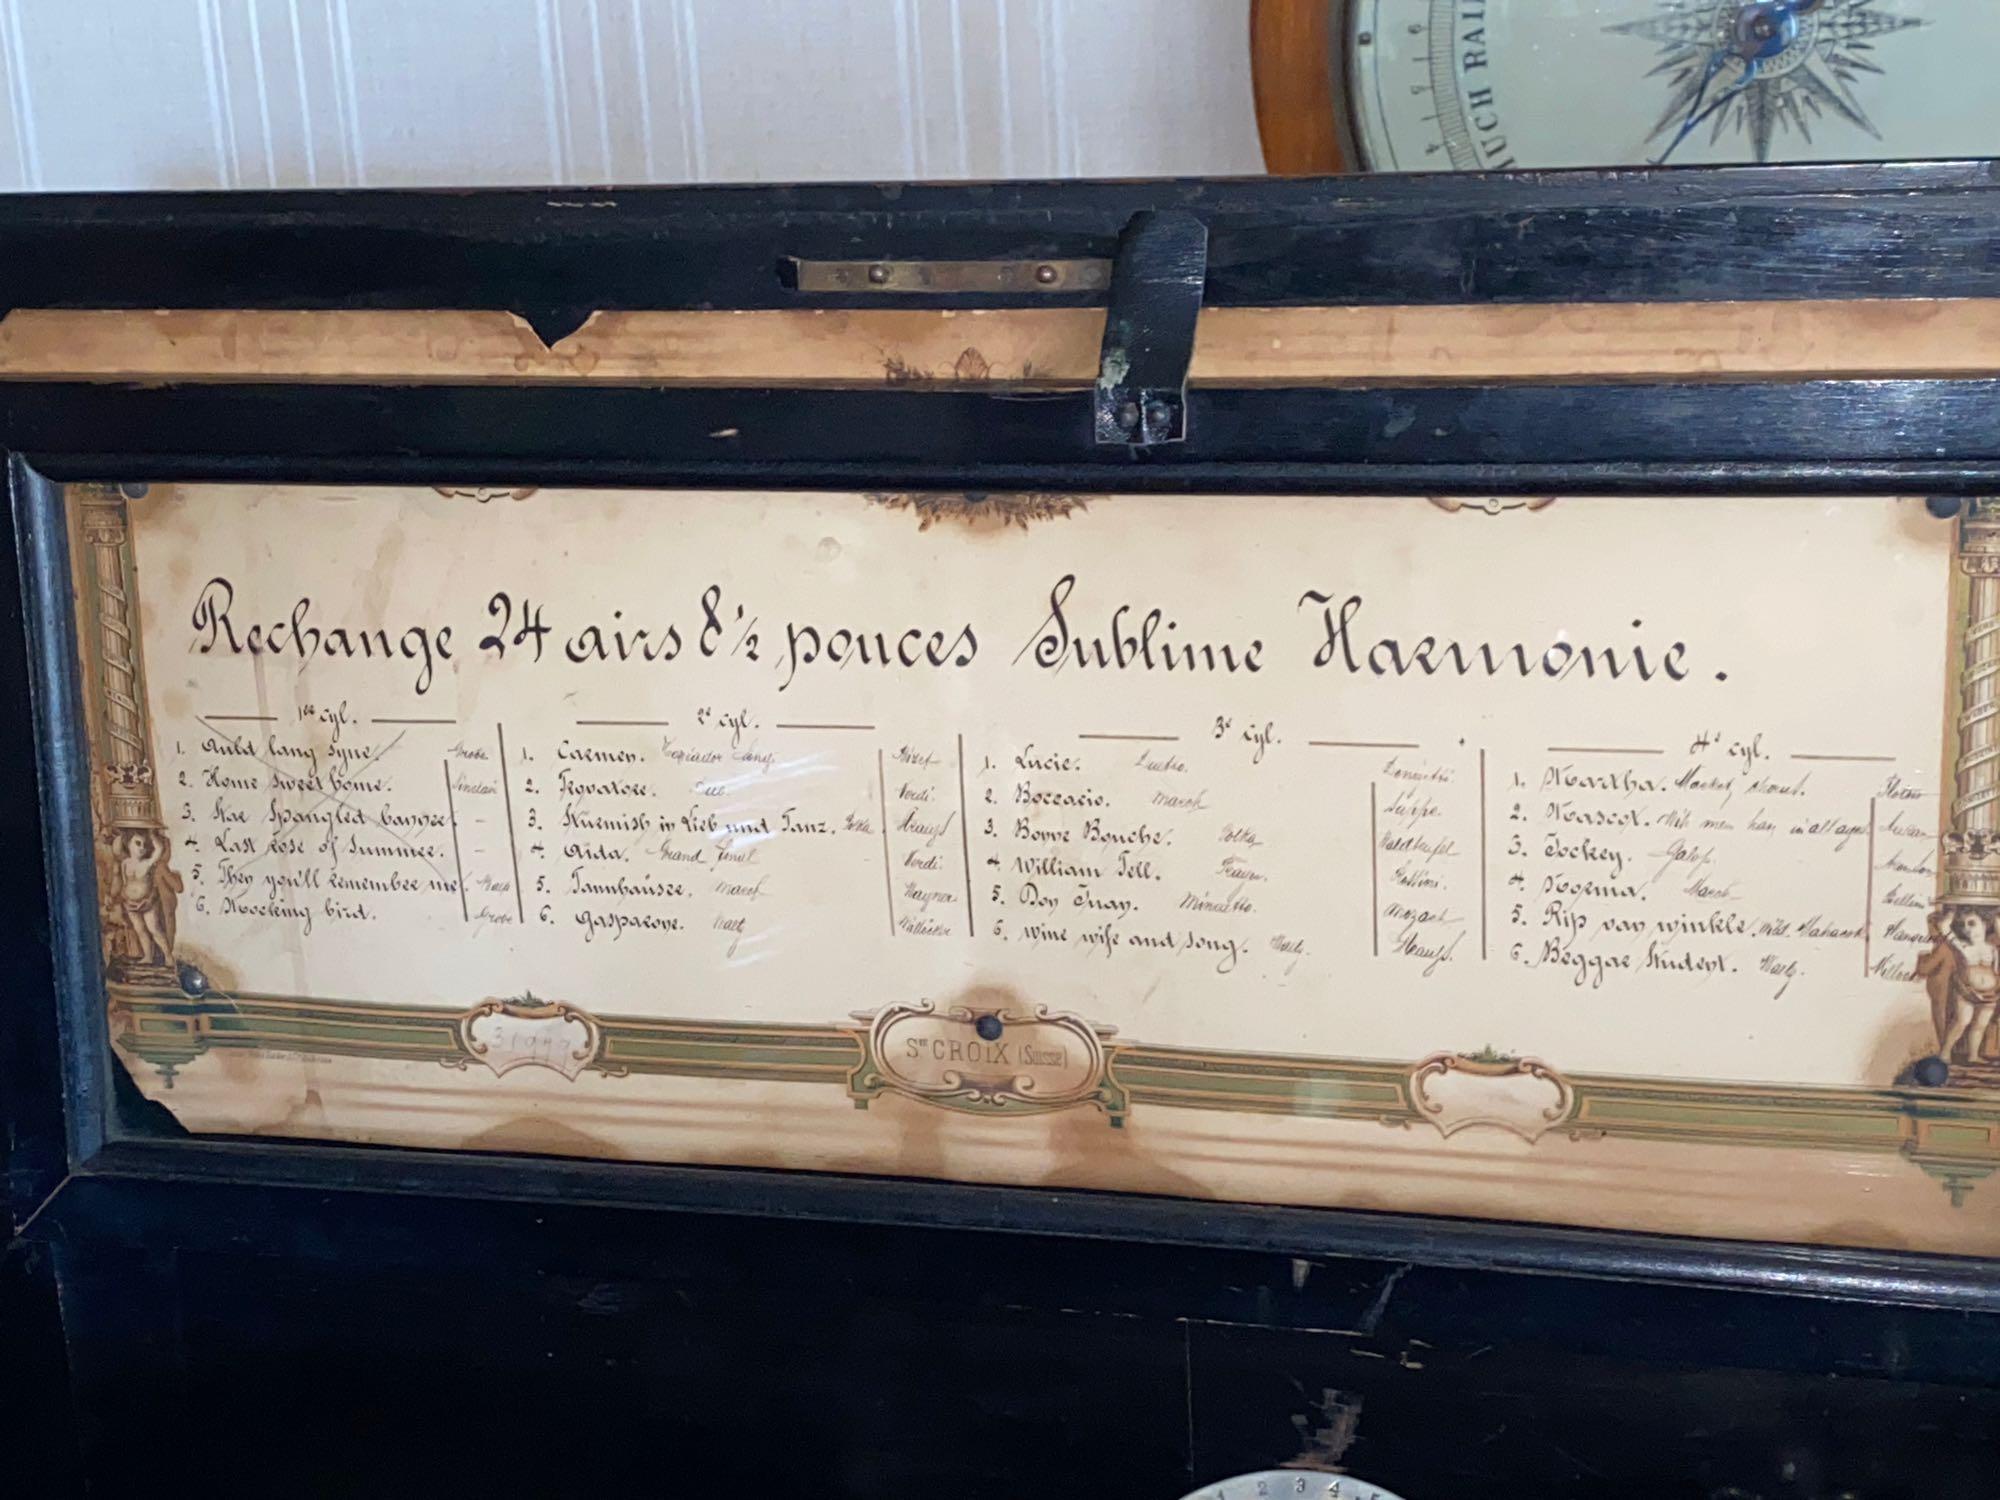 MUCH RAI
Rechange 24 airs 8 1/2 pouces Sublime Harmonie.
1er cyl.
1. Auld lang syne. Grobe
2. Home sweet home. Sinclair
3. Star Spangled banner. -
4. Last rose of Summer. -
5. Then you'll remember me.
6. Mocking bird. Grobe
2e cyl.
1. Carmen. Toréador Song Bizet
2. Trovatore. Verdi.
3. Stürmisch in Lieb und Tanz. Polka Strauss
4. Aida. Grand final Verdi
5. Tannhäuser. March Wagner
6. Gasparone. Waltz Millöcker
3e cyl.
1. Lucie. Donizetti.
2. Boccacio. March Suppe.
3. Bonne Bouche. Polka Waldteufel
4. William Tell. Rossini.
5. Don Juan. Minuetto. Mozart
6. Wine wife and song. Waltz. Strauss.
4e cyl.
1. Martha. Market chorus. Flotow
2. Mascot. in all ages Audran
3. Jockey. Galop.
4. Norma. March Bellini
5. Rip van winkle.
6. Beggar Student. Waltz. Millock
31949
Ste CROIX (Suisse)
1 2 3 4 5